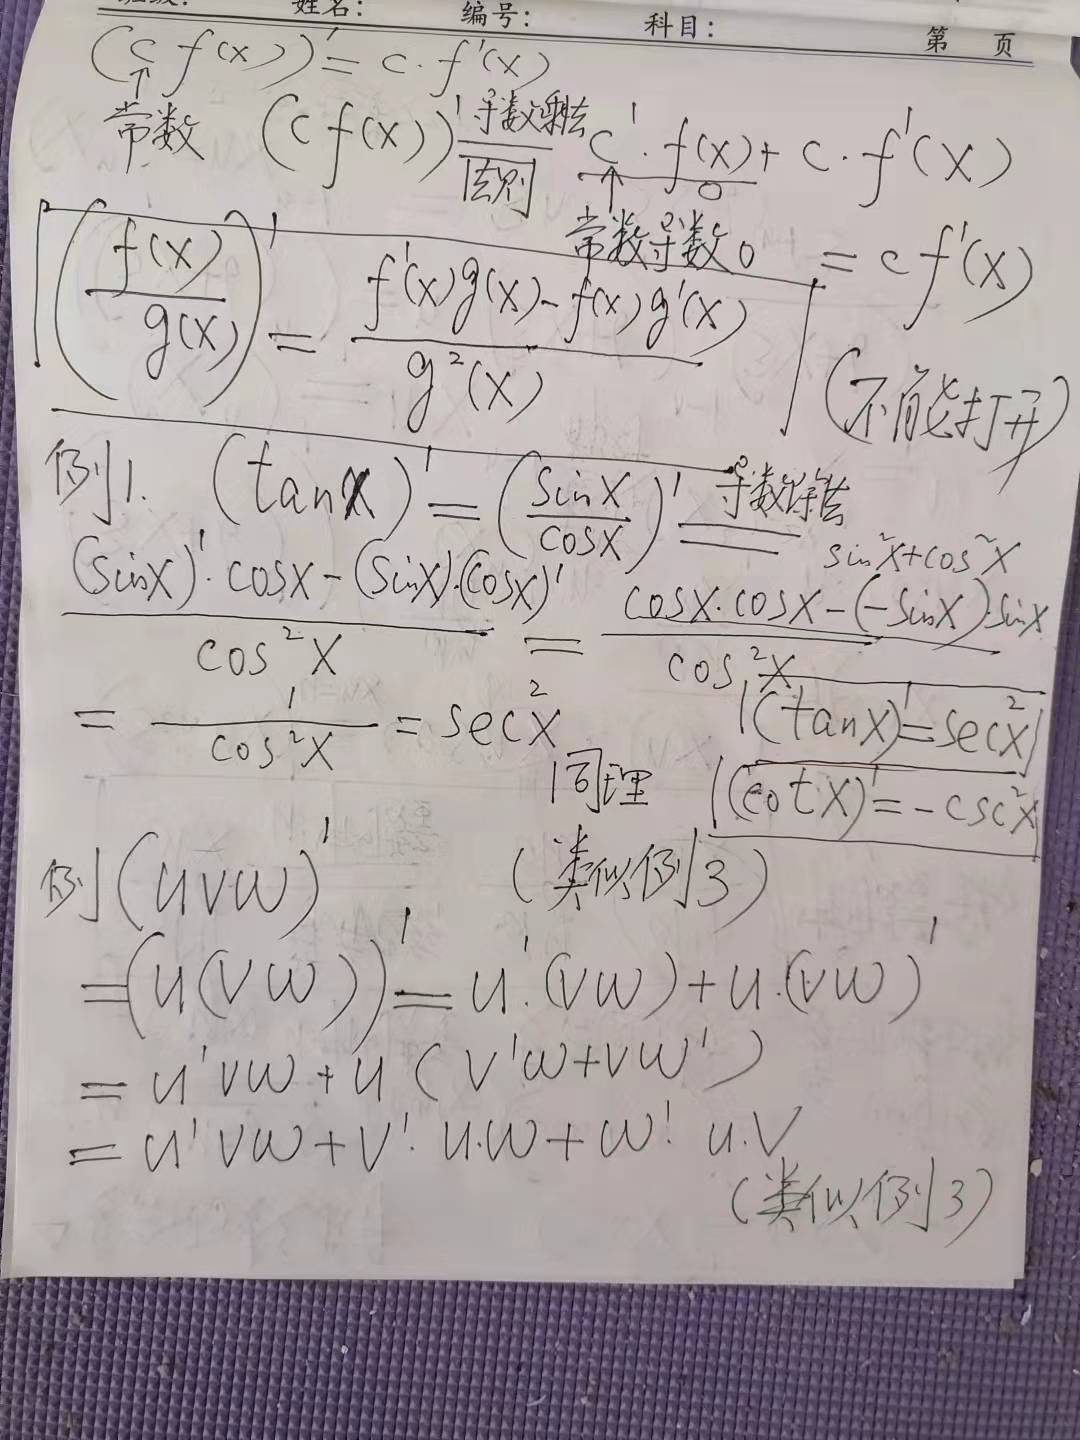 姓名: 编号: 科目: 第 页
(c f(x))' = c·f'(x)
↑
常数 (c f(x))' 导数乘法 法则 c'·f(x) + c·f'(x)
↑ 0
常数导数0 = c f'(x)
(f(x)/g(x))' = (f'(x)g(x) - f(x)g'(x))/g²(x)
(不能打开)
例1. (tanx)' = (sinx/cosx)' 导数除法
sin²x+cos²x
((sinx)'·cosx - (sinx)·(cosx)')/cos²x = (cosx·cosx - (-sinx)·sinx)/cos²x
= 1/cos²x = sec²x (tanx)' = sec²x
同理 (cotx)' = -csc²x
例 (uvw)' (类似例3)
= (u(vw))' = u'·(vw) + u·(vw)'
= u'vw + u(v'w+vw')
= u'vw + v'·u·w + w'·u·v
(类似例3)